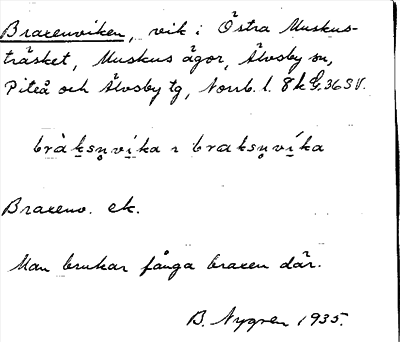 Braxenviken, vik i Östra Muskus-
träsket, Muskus ägor, Älvsby sn,
Piteå och Älvsby tg, Norrb. l. 8k G. 36 SV.
bràksn̥víka ı braksn̥víka
Braxenv. ek.
Man brukar fånga braxen där.
B. Nygren 1935.